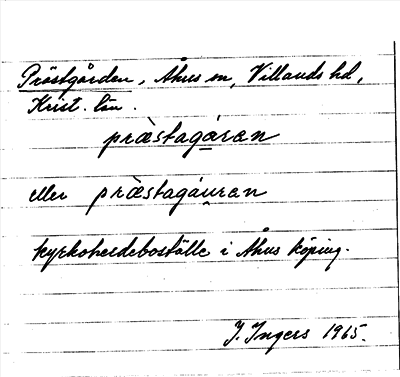 Pröstgården, Åhus sn, Villands hd,
Krist. län.
præ̀stagáran
eller præ̀stagáuran
kyrkoherdeboställe i Åhus köping.
J. Ingers 1965.